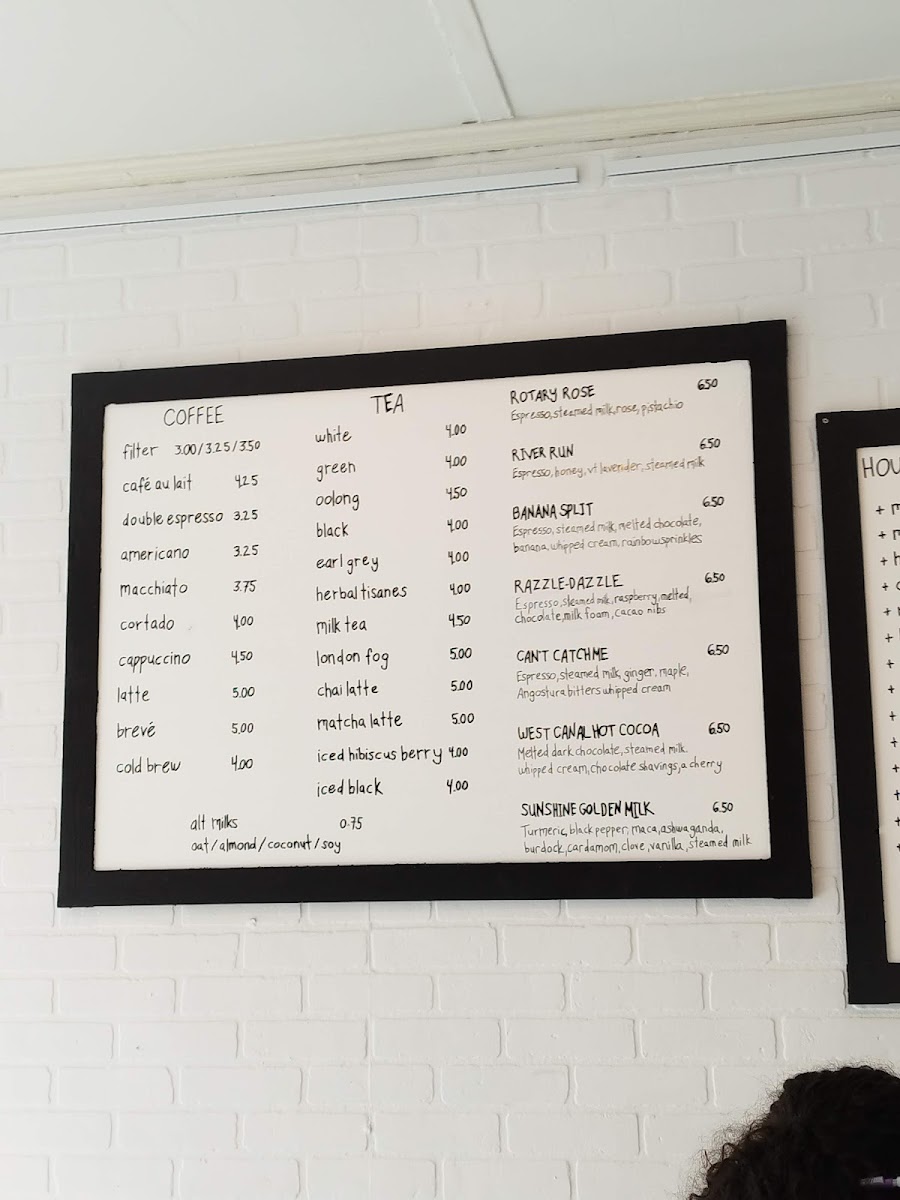 COFFEE
filter 3.00/3.25/3.50
café au lait 4.25
double espresso 3.25
americano 3.25
macchiato 3.75
cortado 4.00
cappuccino 4.50
latte 5.00
brevé 5.00
cold brew 4.00
TEA
white 4.00
green 4.00
oolong 4.50
black 4.00
earl grey 4.00
herbal tisanes 4.00
milk tea 4.50
london fog 5.00
chai latte 5.00
matcha latte 5.00
iced hibiscus berry 4.00
iced black 4.00
alt milks 0.75
oat/almond/coconut/soy
ROTARY ROSE 6.50
Espresso, steamed milk, rose, pistachio
RIVER RUN 6.50
Espresso, honey, vt lavender, steamed milk
BANANA SPLIT 6.50
Espresso, steamed milk, melted chocolate,
banana, whipped cream, rainbow sprinkles
RAZZLE-DAZZLE 6.50
Espresso, steamed milk, raspberry, melted,
chocolate, milk foam, cacao nibs
CAN'T CATCH ME 6.50
Espresso, steamed milk, ginger, maple,
Angostura bitters whipped cream
WEST CANAL HOT COCOA 6.50
Melted dark chocolate, steamed milk.
whipped cream, chocolate shavings, a cherry
SUNSHINE GOLDEN MILK 6.50
Turmeric, black pepper, maca, ashwaganda,
burdock, cardamom, clove, vanilla, steamed milk
HOU